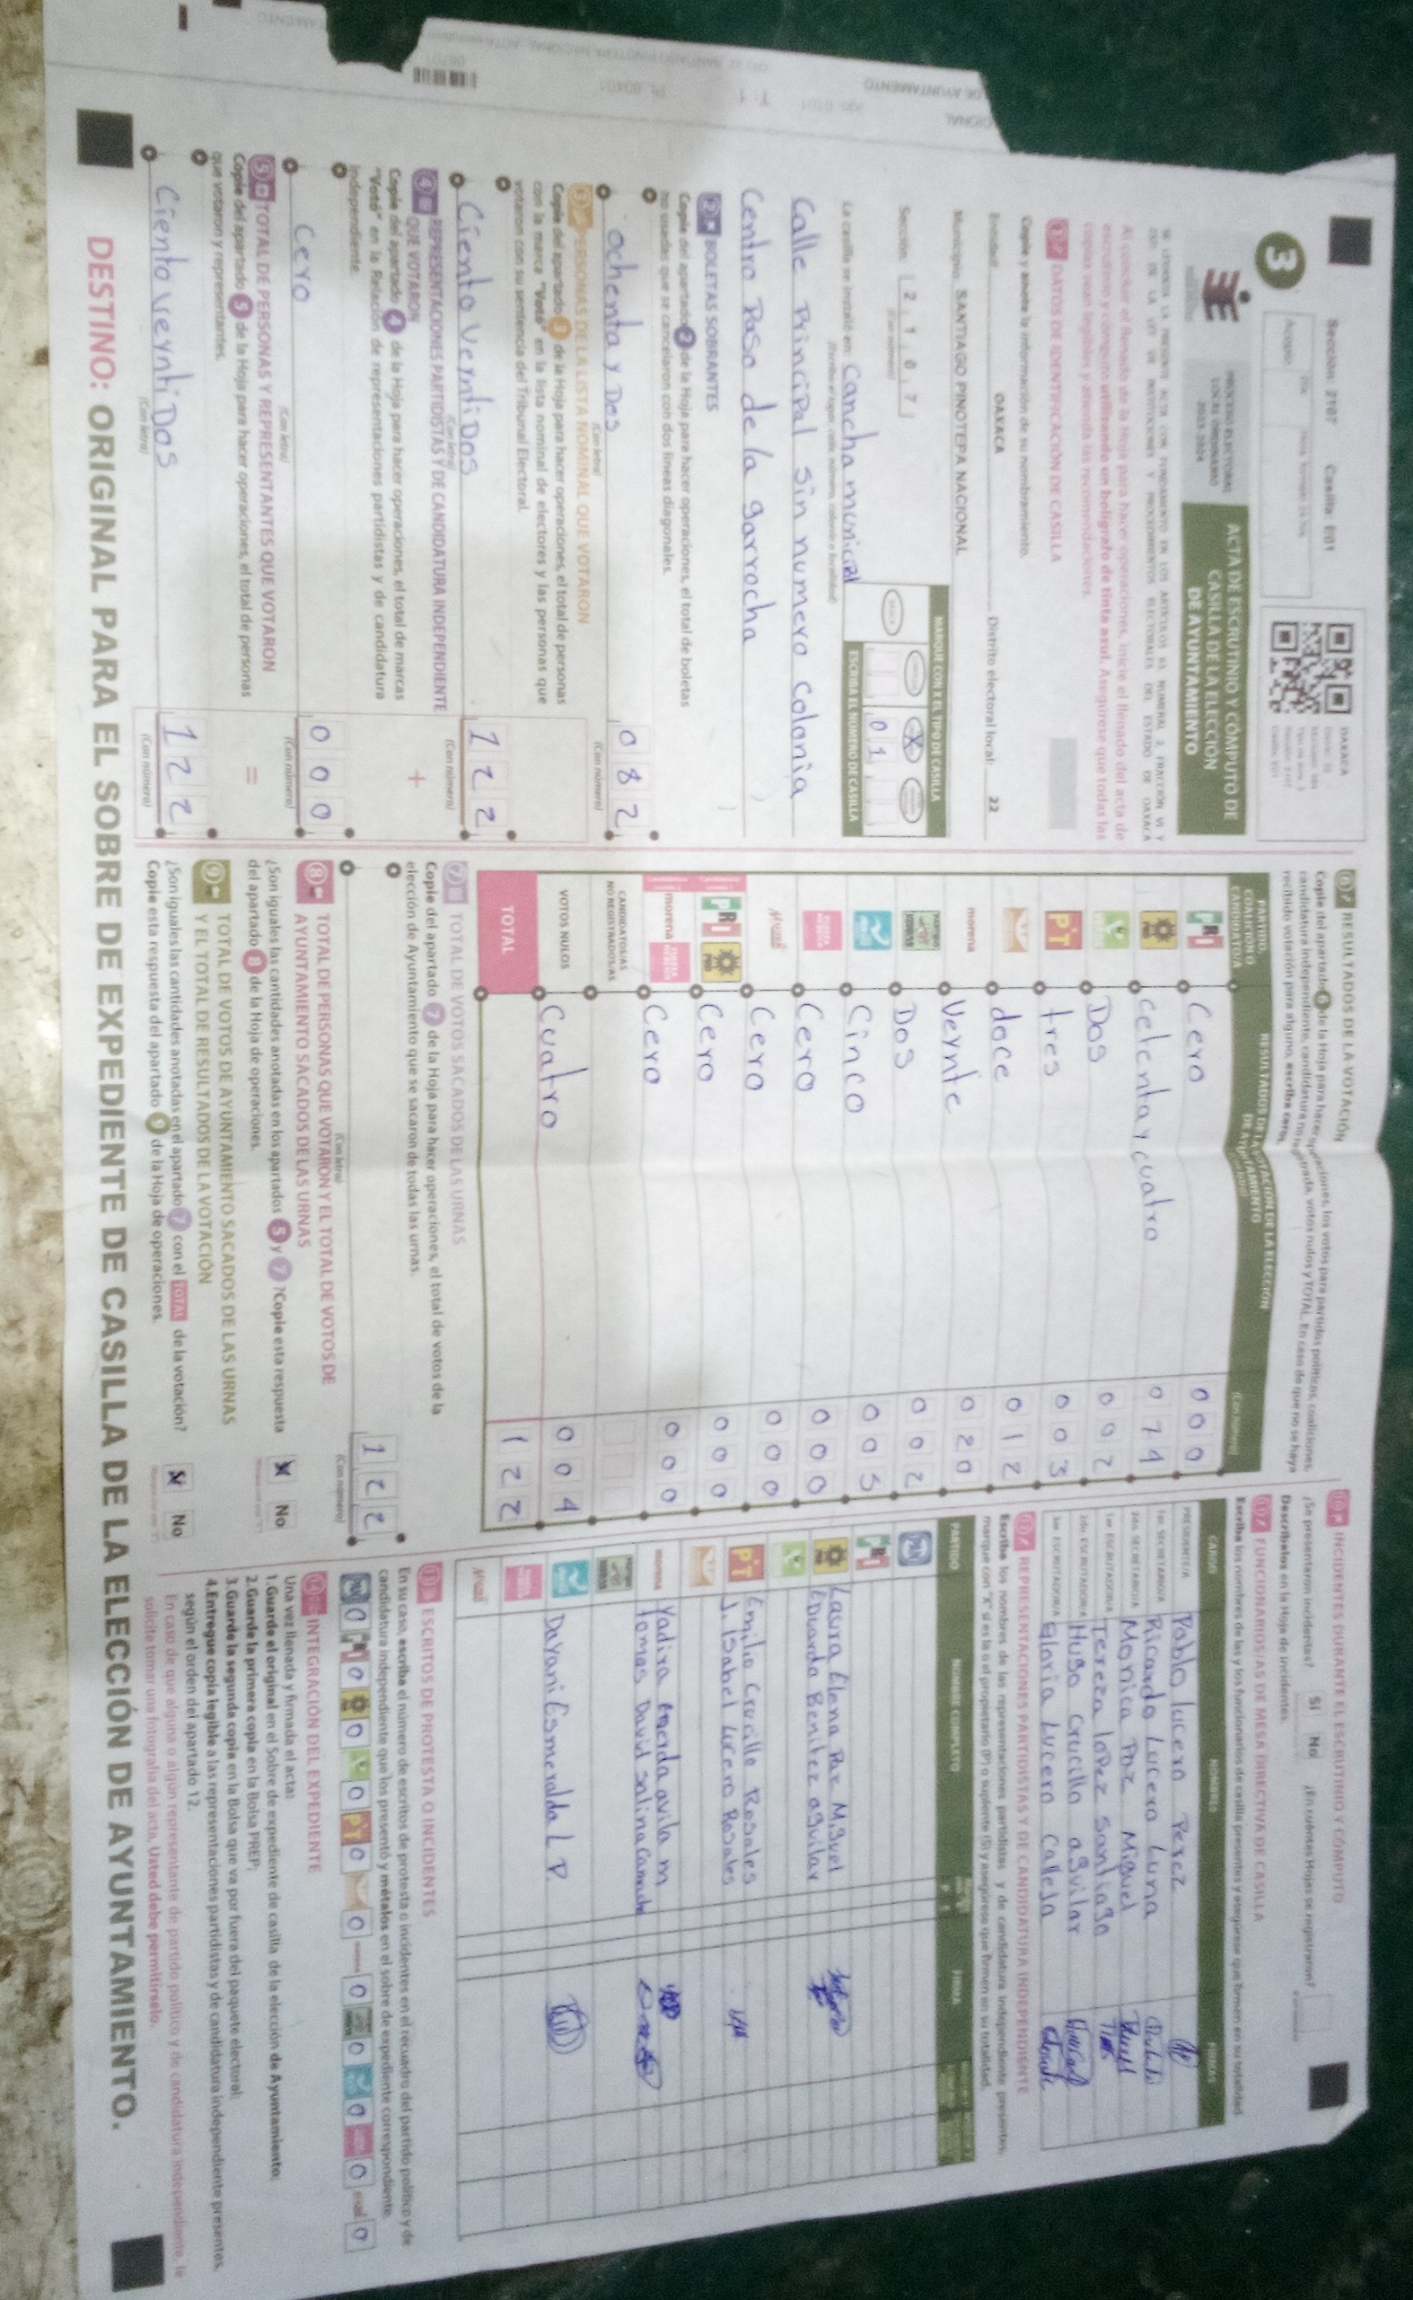 Sección: 2107 Casilla: E01
3
PROCESO ELECTORAL
LOCAL ORDINARIO
2023-2024
ACTA DE ESCRUTINIO Y CÓMPUTO DE
CASILLA DE LA ELECCIÓN
DE AYUNTAMIENTO
OAXACA
SE LEVANTA LA PRESENTE ACTA CON FUNDAMENTO EN LOS ARTÍCULOS
Al concluir el llenado de la Hoja para hacer operaciones, inicie el llenado del acta de
escrutinio y cómputo utilizando un bolígrafo de tinta azul. Asegúrese que todas las
copias sean legibles y atienda las recomendaciones.
1 DATOS DE IDENTIFICACIÓN DE CASILLA
Copie y anote la información de su nombramiento.
Entidad: OAXACA Distrito electoral local: 22
Municipio: SANTIAGO PINOTEPA NACIONAL
Sección: 2 1 0 7
MARQUE CON X EL TIPO DE CASILLA
X
ESCRIBA EL NÚMERO DE CASILLA
0 1
La casilla se instaló en: Cancha municipal
Calle Principal sin numero Colonia
Centro Paso de la garrocha
2 BOLETAS SOBRANTES
Copie del apartado 2 de la Hoja para hacer operaciones, el total de boletas
no usadas que se cancelaron con dos líneas diagonales.
ochenta y Dos 0 8 2
(Con letra) (Con número)
3 PERSONAS DE LA LISTA NOMINAL QUE VOTARON
Copie del apartado 3 de la Hoja para hacer operaciones, el total de personas
con la marca "Votó" en la lista nominal de electores y las personas que
votaron con su sentencia del Tribunal Electoral.
Ciento VeyntiDos 1 2 2
(Con letra) (Con número)
4 REPRESENTACIONES PARTIDISTAS Y DE CANDIDATURA INDEPENDIENTE
QUE VOTARON
Copie del apartado 4 de la Hoja para hacer operaciones, el total de marcas
"Votó" en la Relación de representaciones partidistas y de candidatura
independiente.
+
Cero 0 0 0
(Con letra) (Con número)
5 TOTAL DE PERSONAS Y REPRESENTANTES QUE VOTARON
Copie del apartado 5 de la Hoja para hacer operaciones, el total de personas
que votaron y representantes.
=
Ciento veyntiDos 1 2 2
(Con letra) (Con número)
6 RESULTADOS DE LA VOTACIÓN
PARTIDO, COALICIÓN O CANDIDATO/A
RESULTADOS DE LA VOTACIÓN DE LA ELECCIÓN DE AYUNTAMIENTO
(Con número)
PRI Cero 0 0 0
PRD Cetenta y cuatro 0 7 4
Dos 0 0 2
PT tres 0 0 3
doce 0 1 2
morena Veynte 0 2 0
Dos 0 0 2
Cinco 0 0 5
Cero 0 0 0
Cero 0 0 0
PRI PRD Cero 0 0 0
morena Cero 0 0 0
CANDIDATOS/AS NO REGISTRADOS/AS
VOTOS NULOS Cuatro 0 0 4
TOTAL 1 2 2
7 TOTAL DE VOTOS SACADOS DE LAS URNAS
Copie del apartado 7 de la Hoja para hacer operaciones, el total de votos de la
elección de Ayuntamiento que se sacaron de todas las urnas.
1 2 2
(Con letra) (Con número)
8 TOTAL DE PERSONAS QUE VOTARON Y EL TOTAL DE VOTOS DE
AYUNTAMIENTO SACADOS DE LAS URNAS
¿Son iguales las cantidades anotadas en los apartados 5 y 7? Copie esta respuesta
del apartado 8 de la Hoja de operaciones.
Sí No
9 TOTAL DE VOTOS DE AYUNTAMIENTO SACADOS DE LAS URNAS
Y EL TOTAL DE RESULTADOS DE LA VOTACIÓN
¿Son iguales las cantidades anotadas en el apartado 7 con el TOTAL de la votación?
Copie esta respuesta del apartado 9 de la Hoja de operaciones.
Sí No
10 INCIDENTES DURANTE EL ESCRUTINIO Y CÓMPUTO
¿Se presentaron incidentes? SÍ No ¿En cuántas Hojas se registraron?
Descríbalos en la Hoja de incidentes.
11 FUNCIONARIOS/AS DE MESA DIRECTIVA DE CASILLA
Escriba los nombres de las y los funcionarios de casilla presentes y asegúrese que firmen en su totalidad
CARGO NOMBRES FIRMAS
PRESIDENTE/A Pablo lucero Perez
1er. SECRETARIO/A Ricardo Lucero Luna
2do. SECRETARIO/A Monica Paz Miguel
1er. ESCRUTADOR/A Tereza lopez Santiago
2do. ESCRUTADOR/A Hugo Crucillo aguilar
3er. ESCRUTADOR/A Gloria Lucero Calleja
12 REPRESENTACIONES PARTIDISTAS Y DE CANDIDATURA INDEPENDIENTE
Escriba los nombres de las representaciones partidistas y de candidatura independiente presentes,
marque con "X" si es la o el propietario (P) o suplente (S) y asegúrese que firmen en su totalidad.
PARTIDO NOMBRE COMPLETO FIRMA
PAN
PRI Laura Elena Paz Miguel
PRD Eduardo Benitez aguilar
PT Emilio Crucillo Rosales
J. Isabel Lucero Rosales
morena Yadira Encida avila m
Tomas David salina
Dayani Esmeralda L P
13 ESCRITOS DE PROTESTA O INCIDENTES
En su caso, escriba el número de escritos de protesta o incidentes en el recuadro del partido político y de
candidatura independiente que los presentó y métalos en el sobre de expediente correspondiente.
PAN 0 PRI 0 PRD 0 0 PT 0 0 0 0 0 0 0
14 INTEGRACIÓN DEL EXPEDIENTE
Una vez llenada y firmada el acta:
1. Guarde el original en el Sobre de expediente de casilla de la elección de Ayuntamiento;
2. Guarde la primera copia en la Bolsa PREP;
3. Guarde la segunda copia en la Bolsa que va por fuera del paquete electoral;
4. Entregue copia legible a las representaciones partidistas y de candidatura independiente presentes,
según el orden del apartado 12.
En caso de que alguna o algún representante de partido político y de candidatura independiente, le
solicite tomar una fotografía del acta, Usted debe permitírselo.
DESTINO: ORIGINAL PARA EL SOBRE DE EXPEDIENTE DE CASILLA DE LA ELECCIÓN DE AYUNTAMIENTO.